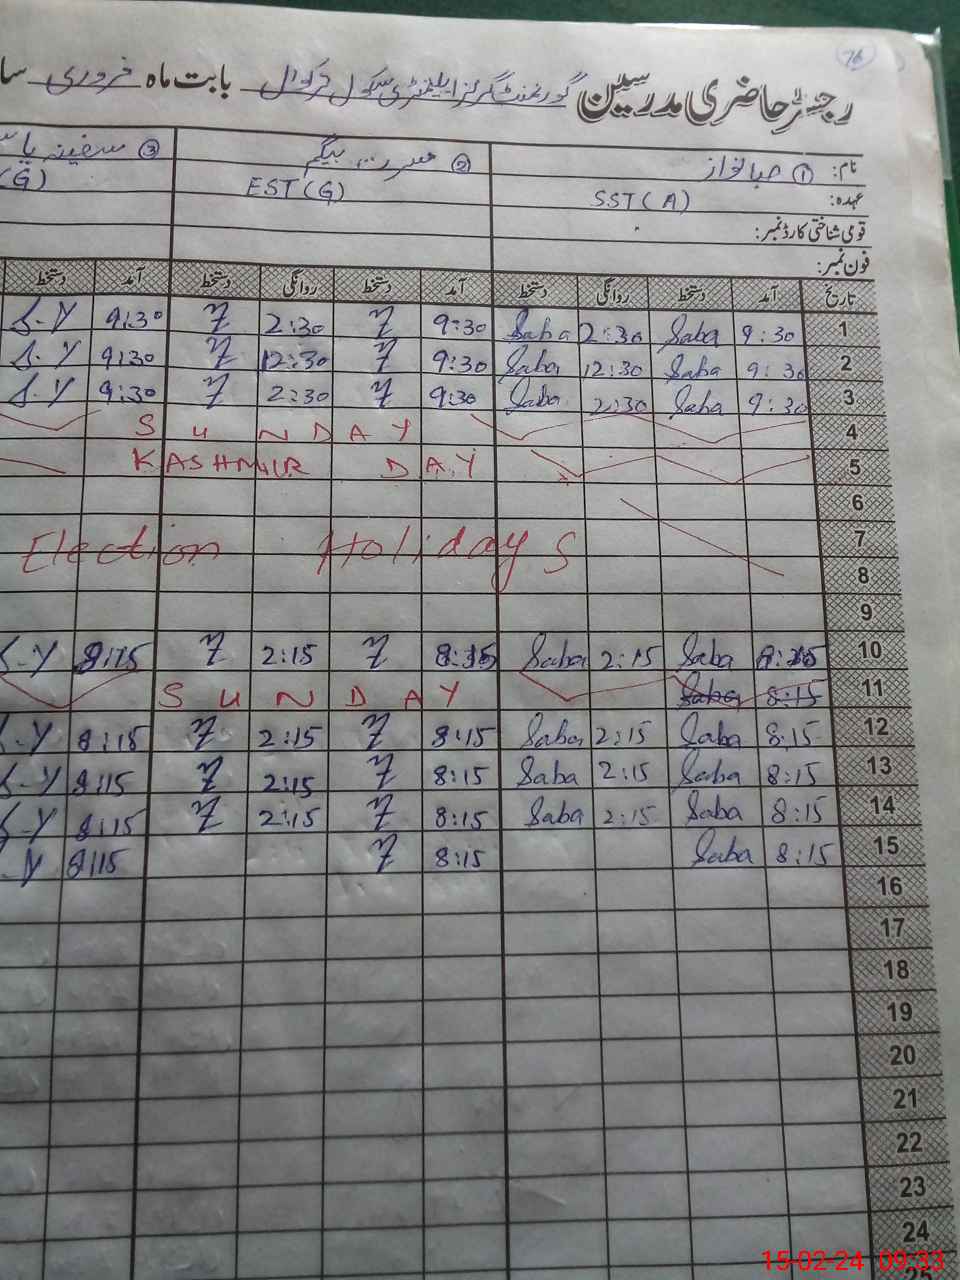 76
رجسٹر حاضری مدرسین گورنمنٹ گرلز ایلیمنٹری سکول بابت ماہ فروری سا
نام: ① صبا نواز ② بیگم ③ سفینہ یا
عہدہ: SST (A) EST (G) (G)
قومی شناختی کارڈ نمبر:
فون نمبر:
تاریخ آمد دستخط روانگی دستخط آمد دستخط روانگی دستخط آمد دستخط
1 9:30 Saba 2:30 Saba 9:30 2:30 9:30 S.Y
2 9:30 Saba 12:30 Saba 9:30 12:30 9:30 S.Y
3 9:30 Saba 2:30 Saba 9:30 2:30 9:30 S.Y
4 SUNDAY
5 KASHMIR DAY
6
7 Election Holidays
8
9
10 8:15 Saba 2:15 Saba 8:15 2:15 8:15 S-Y
11 8:15 Saba SUNDAY
12 8:15 Saba 2:15 Saba 8:15 2:15 8:15 S-Y
13 8:15 Saba 2:15 Saba 8:15 2:15 8:15 S-Y
14 8:15 Saba 2:15 Saba 8:15 2:15 8:15 S-Y
15 8:15 Saba 8:15 8:15 Y
16
17
18
19
20
21
22
23
24
25
15-02-24 09:33